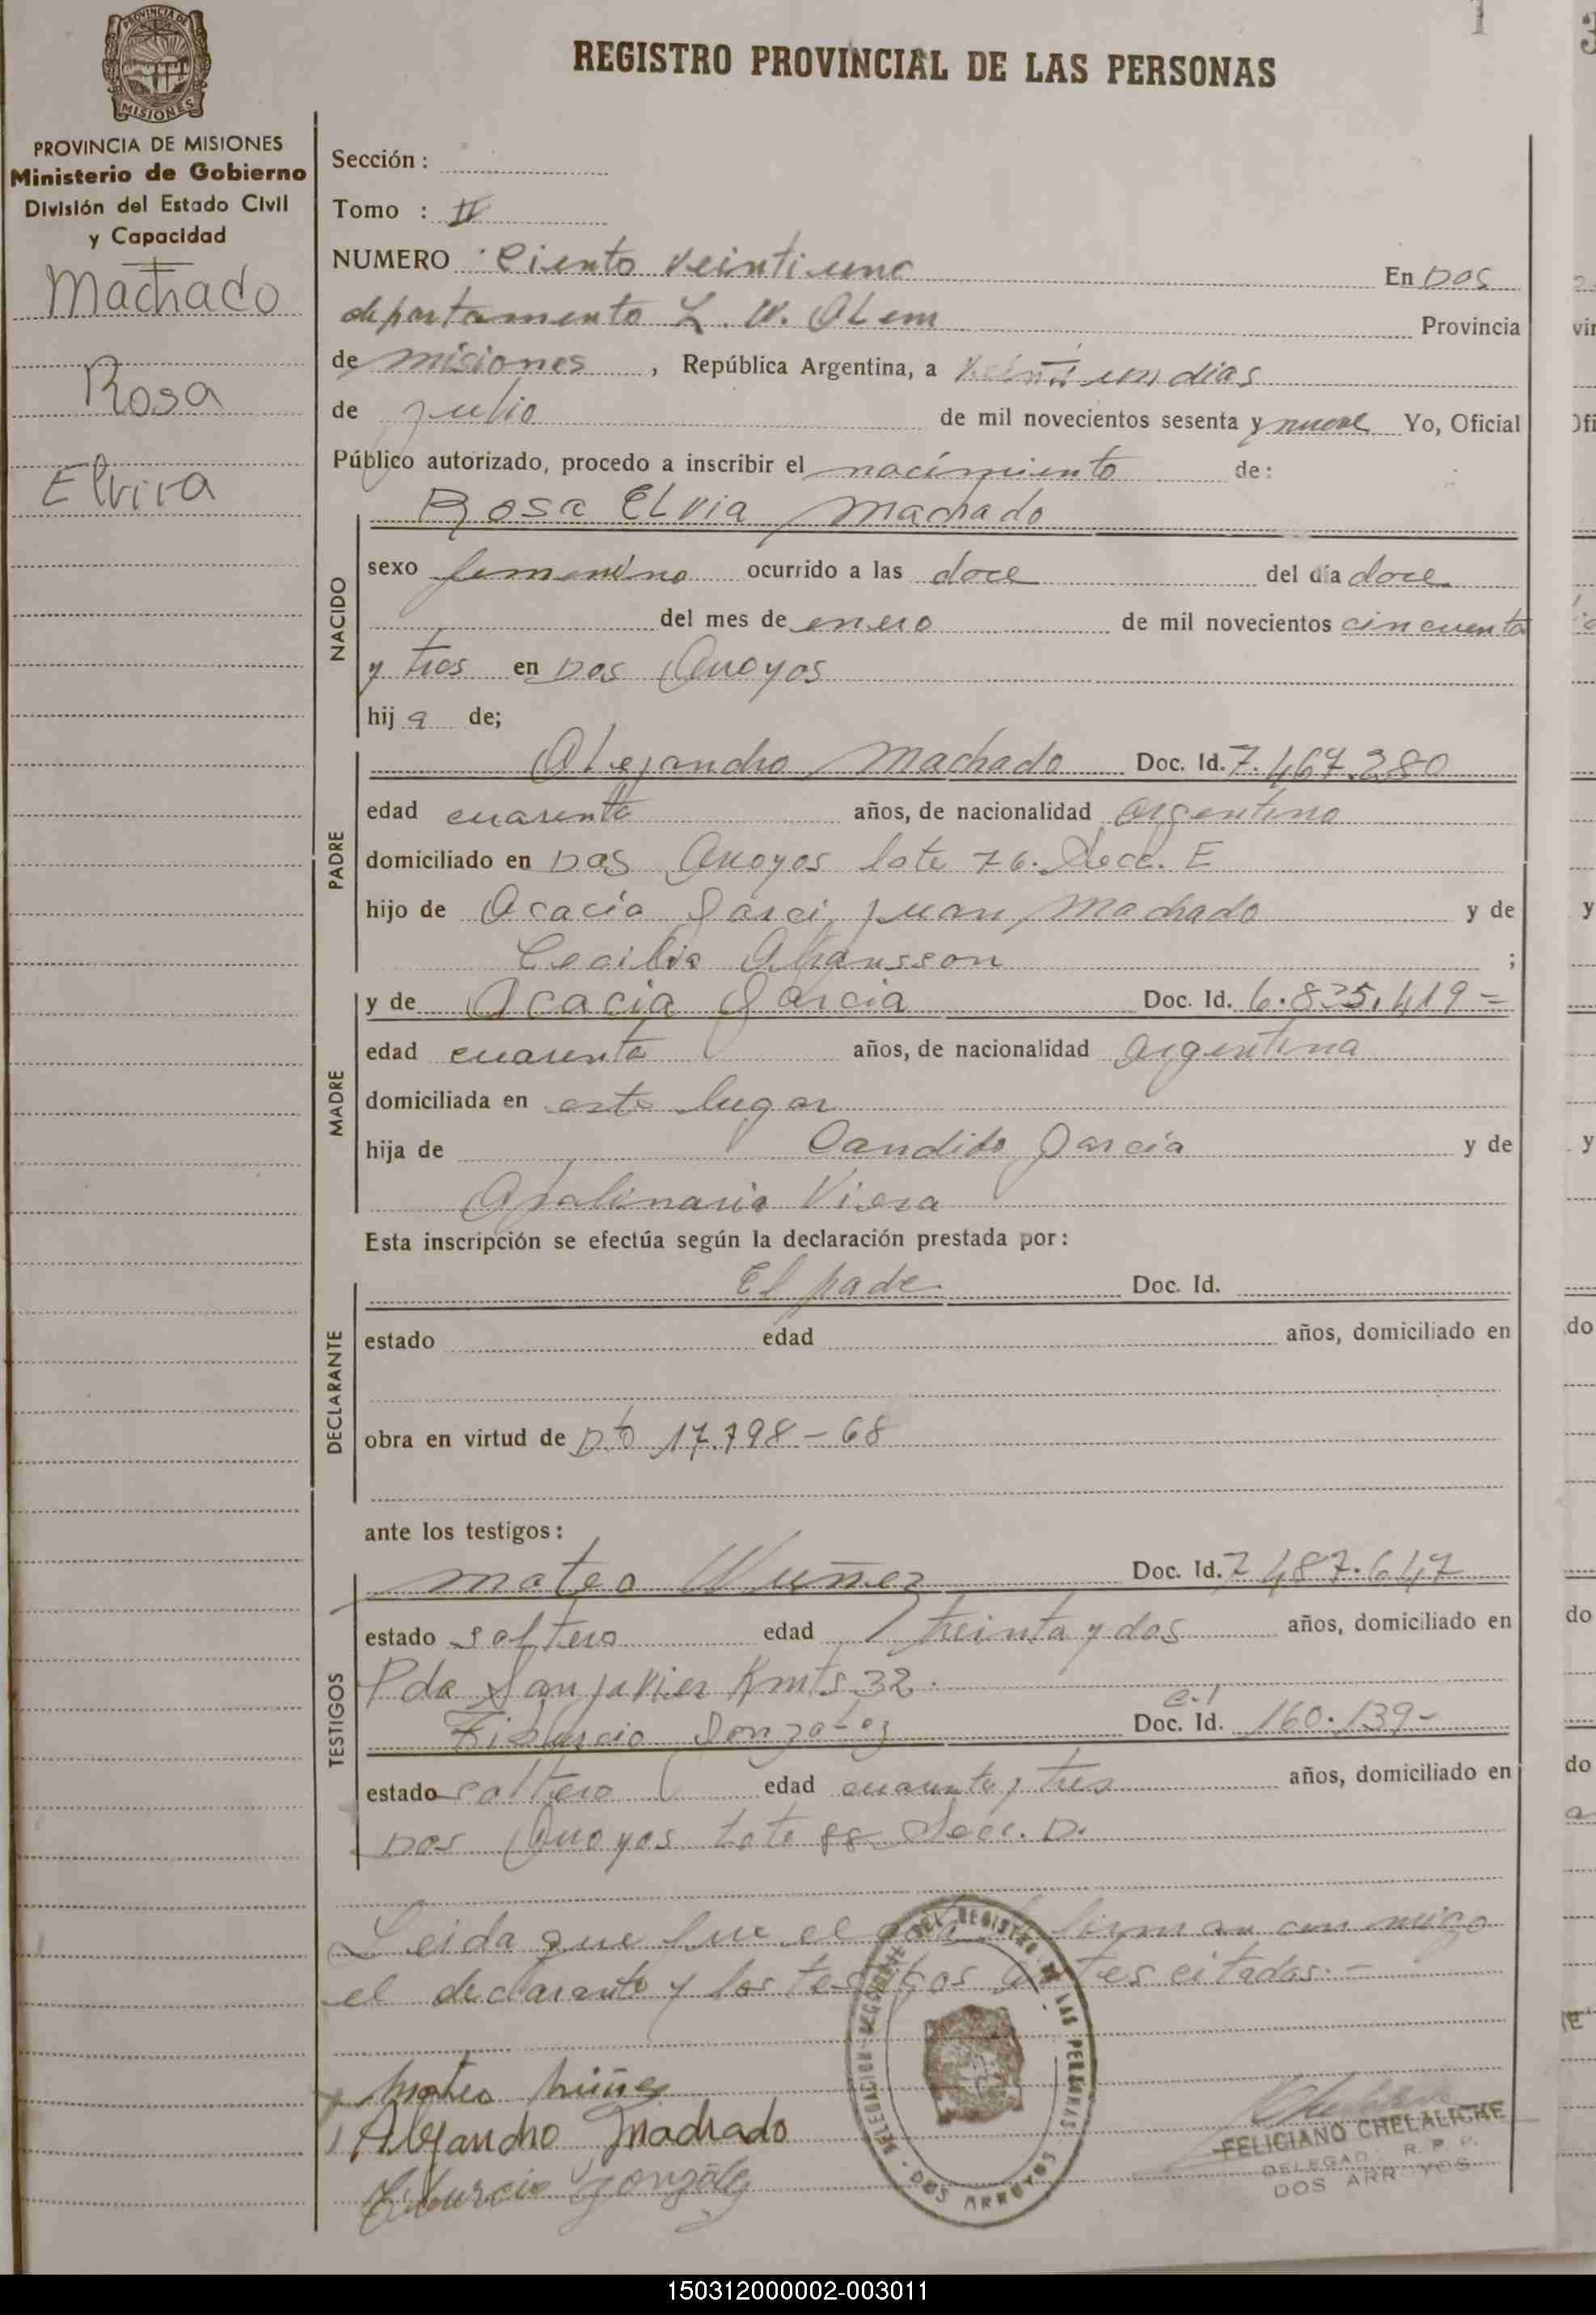 PROVINCIA DE
MISIONES
PROVINCIA DE MISIONES
Ministerio de Gobierno
División del Estado Civil
y Capacidad
Machado
Rosa
Elvira
1
REGISTRO PROVINCIAL DE LAS PERSONAS
Sección :
Tomo : II
NUMERO Ciento veintiuno En Dos
departamento L. N. Alem Provincia
de misiones , República Argentina, a veinti un dias
de julio de mil novecientos sesenta y nueve Yo, Oficial
Público autorizado, procedo a inscribir el nacimiento de:
Rosa ELvia Machado
NACIDO
sexo femenino ocurrido a las doce del día doce
del mes de enero de mil novecientos cincuenta
y tres en Dos Arroyos
hij a de;
PADRE
Alejandro Machado Doc. Id. 7.467.280
edad cuarenta años, de nacionalidad argentino
domiciliado en Dos Arroyos lote 76. Secc. E
hijo de Acacia Garci Juan Machado y de
Cecilia ;
MADRE
y de Acacia Garcia Doc. Id. 6.835.419=
edad cuarenta años, de nacionalidad argentina
domiciliada en este lugar
hija de Candido Garcia y de
Apalinaria Viera
Esta inscripción se efectúa según la declaración prestada por:
DECLARANTE
El pade Doc. Id.
estado edad años, domiciliado en
obra en virtud de Dto 17.798-68
ante los testigos:
TESTIGOS
Mateo Nuñez Doc. Id. 7.487.647
estado soltero edad treinta y dos años, domiciliado en
Pda San Javier Kmts 32.
c.I
Tiburcio Gonzalez Doc. Id. 160.139-
estado soltero edad cuarenta y tres años, domiciliado en
Dos Arroyos lote 88 Secc. D.
Leida que fue el acta firman conmigo
el declarante y los testigos antes citados.-
DEL REGISTRO DE LAS PERSONAS
DELEGACION
DOS ARROYOS
Mateo Núñez
Alejandro Machado
Tiburcio González
FELICIANO CHELALICHE
DELEGAD R. P. P.
DOS ARROYOS
150312000002-003011